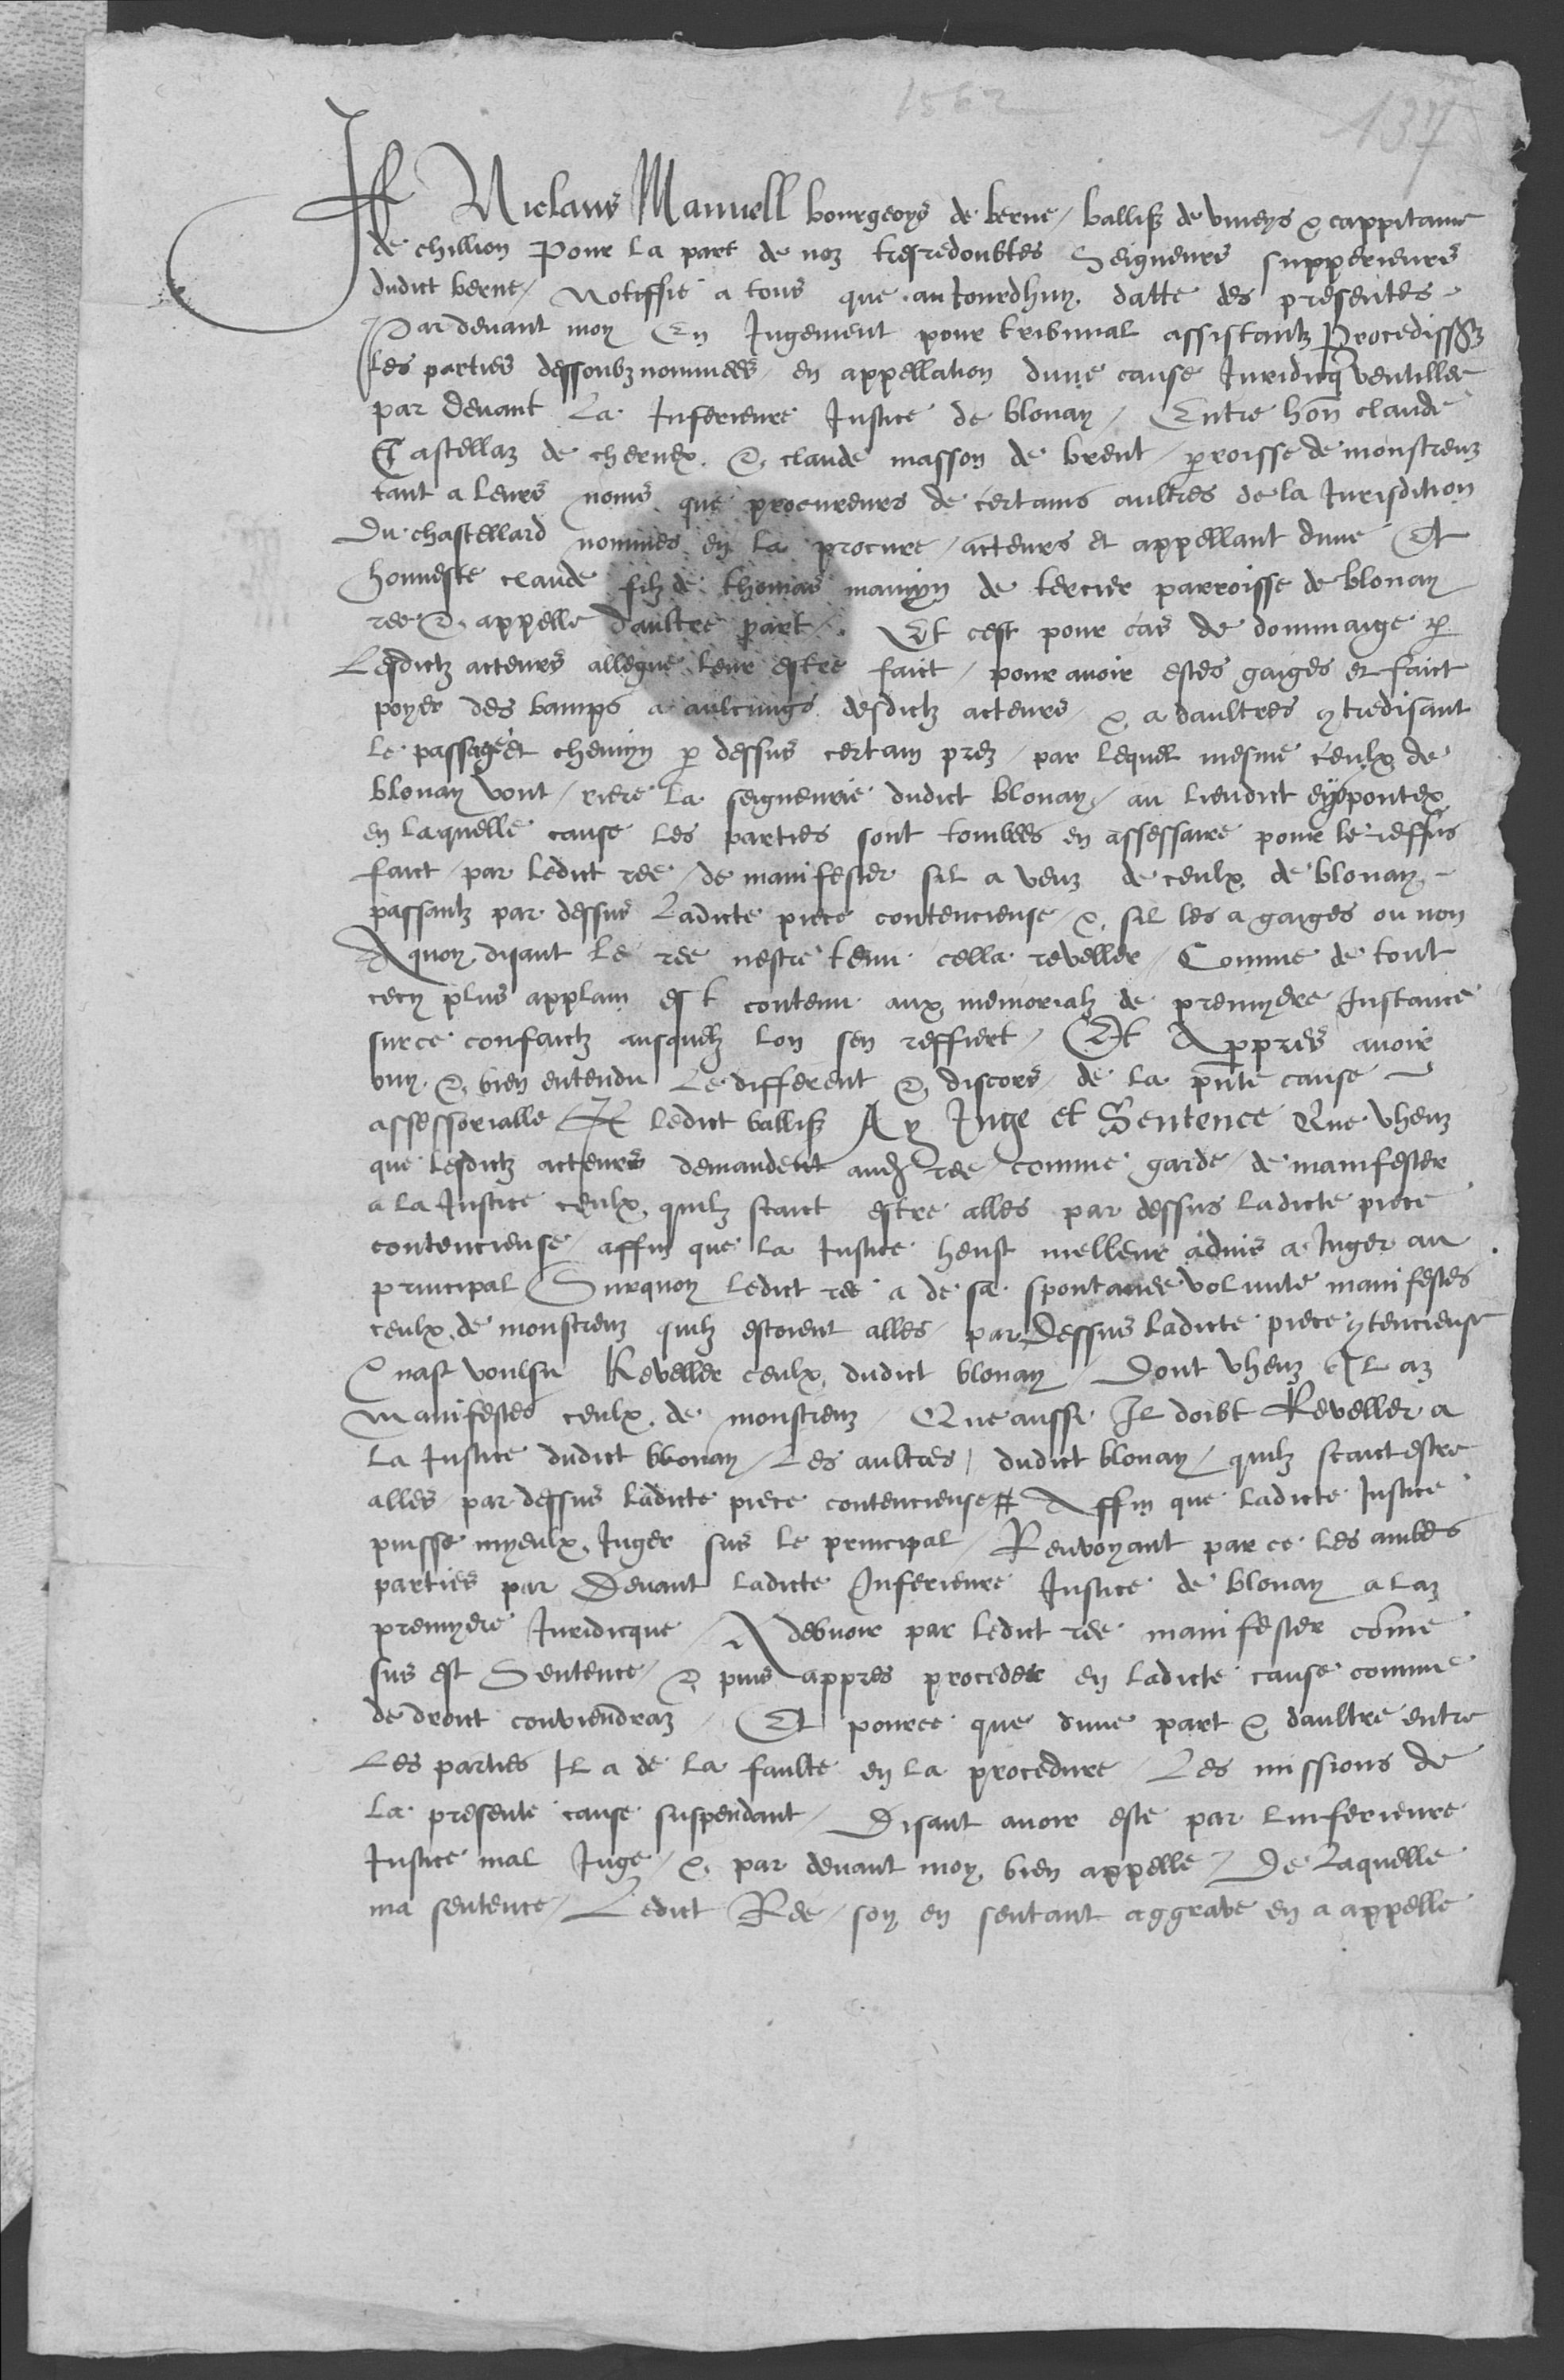 1562
137
Je Niclaus Manuell bourgeoys de berne / ballifz de viveys & cappitanne
de chillion Pour la part de noz tresredoubtes Seigneurs supperieurs
dudict berne / Notiffie a tous que aujourdhuy datte des presentes
Par devant moy En Jugement pour tribunal assistantz
les parties dessoubz nommees en appellation dune cause Juridicq ventillee
par devant La Inferieure Justice de blonay / Entre hon claude
Castellaz de chernex & claude masson de brent / parroisse de monstreuz
tant a leurs noms que procureurs de certains aultres de la Jurisdition
Du chastellard nommes en la procure / acteurs et appellant dune Et
honneste claude filz de thomas mamyn de tercier parroisse de blonay
ree & appelle daultre part / Et cest pour cas de dommaige p
Lesdictz acteurs allegue leur estre faict / pour avoir estes gaiges et faict
poyer des bamps a aulcungs desdictz acteurs / & a daultres contredisant
le passage et chemyn p dessus certain prez / par lequel mesme ceulx de
blonay vont / riere la seigneurie dudict blonay / au lieudict
en laquelle cause les parties sont tombees en assessaire pour le reffus
faict / par ledict ree / de manifester sil a veuz de ceulx de blonay
passantz par dessus Ladicte piece contencieuse / & sil les a gaiges ou non
A quoy disant le ree nestre tenu cella reveller / Comme de tout
cecy plus applain est contenu aux memorialz de premyere Instance
sur ce confaictz ausquelz lon sen reffiert / Et Appres avoir
ouy & bien entendu Le different & discors / de la pnte cause
assessorialle Je ledict ballifz Ay Juge et Sentence Que vheuz
que lesdictz acteurs demandent aud ree / comme garde / de manifester
a la Justice ceulx quilz scaict estre alles par dessus ladicte piece
contencieuse / affin que la Justice heust melleur advis a Juger au
principal Surquoy ledict ree a de sa spontanee volunte manifestes
ceulx de monstreuz quilz estoient alles / par Dessus ladicte piece contencieuse
& nast voulsu Reveller ceulx dudict blonay / Dont vheuz Il az
manifestes ceulx de monstreuz / Que aussi Il doibt Reveller a
la Justice dudict blonay / Les aultres / dudict blonay / quilz scaict estre
alles / par dessus ladicte piece contencieuse Affin que ladicte Justice
puisse myeulx Juger sus le principal / Renvoyant par ce les ambes
parties par Devant ladicte Inferieure Justice de blonay a laz
premyere Juridicque / A debvoir par ledict ree manifester come
sus est Sentence / & puis appres proceder en ladicte cause comme
de droict conviendraz / Et pource que dune part & daultre entre
Les parties Il a de la faulte en la procedure / Les missions de
la presente cause suspendant / Disant avoir este par linferieure
Justice mal Juge / & par devant moy bien appelle / De Laquelle
ma sentence / Ledict Ree / soy en sentant aggrave en a appelle